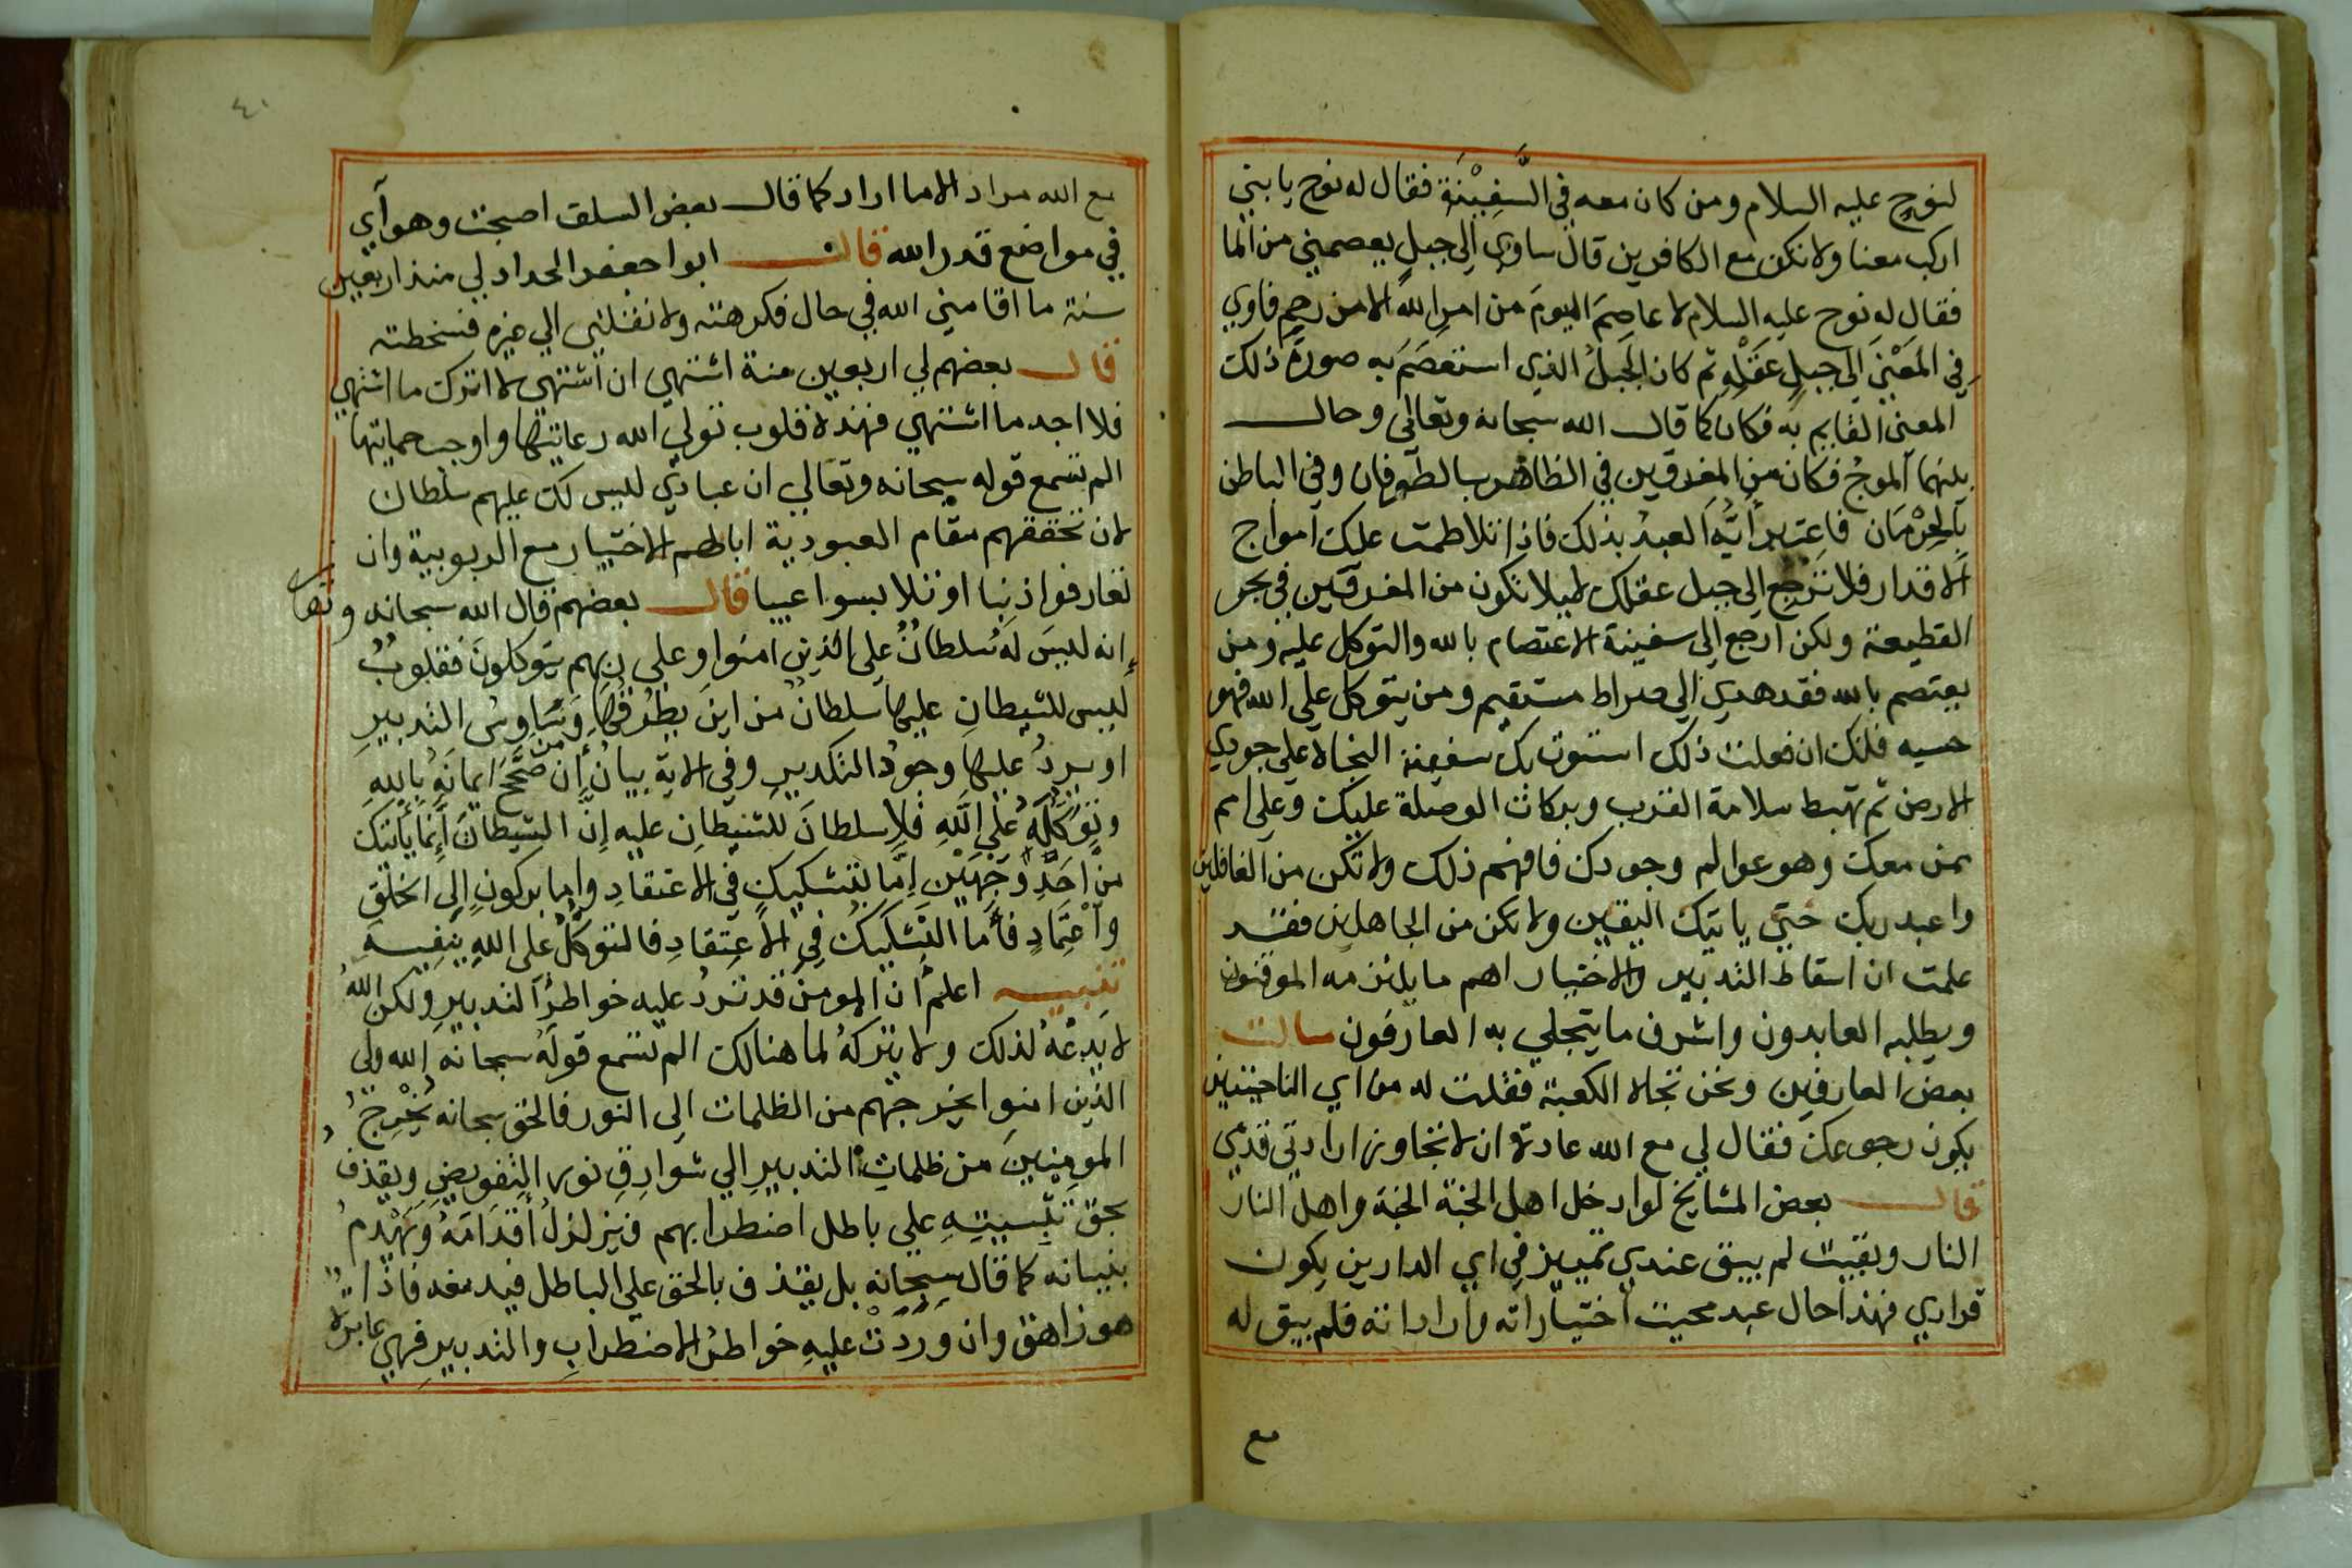 لنوح عليه السلام ومن كان معه في السَّفِيْنَة فقال له نوح يا بني
اركب معنا ولا تكن مع الكافرين قال ساوي الي جبل يعصمني من الما
فقال له نوح عليه السلام لا عاصِمَ اليومَ من امرِ اللهِ الا من رحِم فاوي
في المَعْنَي الي جبلِ عَقْلِهِ ثم كان الجبلُ الذي استعصَمَ به صورةَ ذلك
المعنى القايم به فكان كما قال الله سبحانه وتعالي وحال
بينهما الموجُ فكان من المغرقين في الظاهر بالطوفان وفي الباطن
بِالحِرْمَان فاعتبر أَيُّهَا العبدُ بذلك فاذا تلاطمت عليك امواج
الاقدار فلا ترجِع الي جبل عقلك ليلا تكون من المغرقين في بحر
القطيعة ولكن ارجع الي سفينة الاعتصام بالله والتوكل عليه ومن
يعتصم بالله فقد هدي الي صراط مستقيم ومن يتوكل علي الله فهو
حسبه فانك ان فعلت ذلك استوت بك سفينة النجاة علي جودي
الارض ثم تهبط سلامة القرب وبركات الوصلة عليك وعلي امم
ممن معك وهو عوالم وجودك فافهم ذلك ولا تكن من الغافلين
واعبد ربك حتي ياتيك اليقين ولا تكن من الجاهلين فقد
علمت ان اسقاط التدبير والاختيار اهم ما يلتزمه الموقنون
ويطلبه العابدون واشرف ما يتجلي به العارفون سالت
بعض العارفين ونحن تجاه الكعبة فقلت له من اي الناحيتين
يكون رجوعك فقال لي مع الله عادة ان لا تجاوز ارادتي قدمي
قال بعض المشايخ لوادخل اهل الجنة الجنة واهل النار
النار وبقيت لم يبق عندي تمييز في اي الدارين يكون
قراري فهذا حال عبد محيت اختياراته وارادانه فلم يبق له
مع
٤٠
مع الله مراد الا ما اراد كما قال بعض السلف اصبحت وهوآي
في مواضع قدر الله قال ابوا حفص الحداد لي منذ اربعين
سنة ما اقامني الله في حال فكرهته ولا نقلني الي غيره فسخطته
قال بعضهم لي اربعين سنة اشتهي ان اشتهي لا اترك ما اشتهي
فلا اجد ما اشتهي فهذة قلوب تولي الله رعايتها واوجب حمايتها
الم تسمع قوله سبحانه وتعالي ان عبادي ليس لك عليهم سلطان
لان تحققهم مقام العبودية اباطهم الاختيار مع الربوبية وان
تعارفوا ذنبا او تلابسوا عيبا قال بعضهم قال الله سبحانه وتعا
إنه ليسَ لهُ سلطانٌ علي الذين امنوا وعلي ربهم يتوكلون فقلوبٌ
ليس للشيطانِ عليها سلطانٌ من اينَ يطرُقُها وسَاوِسُ التدبيرِ
او يردُ عليها وجودُ التكديرِ وفي الايةِ بيانُ إِن من صَحَّحَ ايمانَهُ باللهِ
وتوكّلَهُ علي اللَّهِ فلا سلطانَ للشيطانِ عليه إِنَّ الشيطانَ إِنما يأتيك
من أَحَدِ وَجهَيْن إِمَّا بتشكيكٍ في الاعتقادِ وإما بركونٍ الي الخلقِ
واعْتِمَادٍ فأما التشكيك في الاعتقادِ فالتوكلُ علي اللهِ ينفيه
تنبيه اعلم ان المومن قد تردُ عليه خواطرُ التدبيرِ ولكن اللهَ
لا يدعُهُ لذلك ولا يتركهُ لما هنالك الم تسمع قولَه سبحانه الله ولي
الذين امنوا يخرجهم من الظلمات الي النور فالحق سبحانه يُخْرِجُ
المومنينَ من ظلماتِ التدبيرِ الي شوارقِ نورِ التفويضِ ويقذفُ
بحق تثبيتِهِ علي باطل اضطرابهم فيزلزلُ أقدامَهُ ويَهْدِمُ
بنيانه كما قال سبحانه بل يقذف بالحق علي الباطل فيدمغه فاذا
هو زاهق وان وَرَدَتْ عليهِ خواطرُ الاضطرابِ والتدبيرِ فهي عابرة